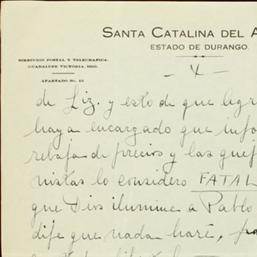 SANTA CATALINA DEL A
ESTADO DE DURANGO.
DIRECCION POSTAL Y TELEGRAFICA.
GUADALUPE VICTORIA, DGO.
APARTADO No. 
- 4 -
de Liz. y esto de que legr
haya encargado que info
rebaja de precios y las quej
nistas lo considero FATAL
que Dios ilumine a Pablo
dije que nada haré, pa